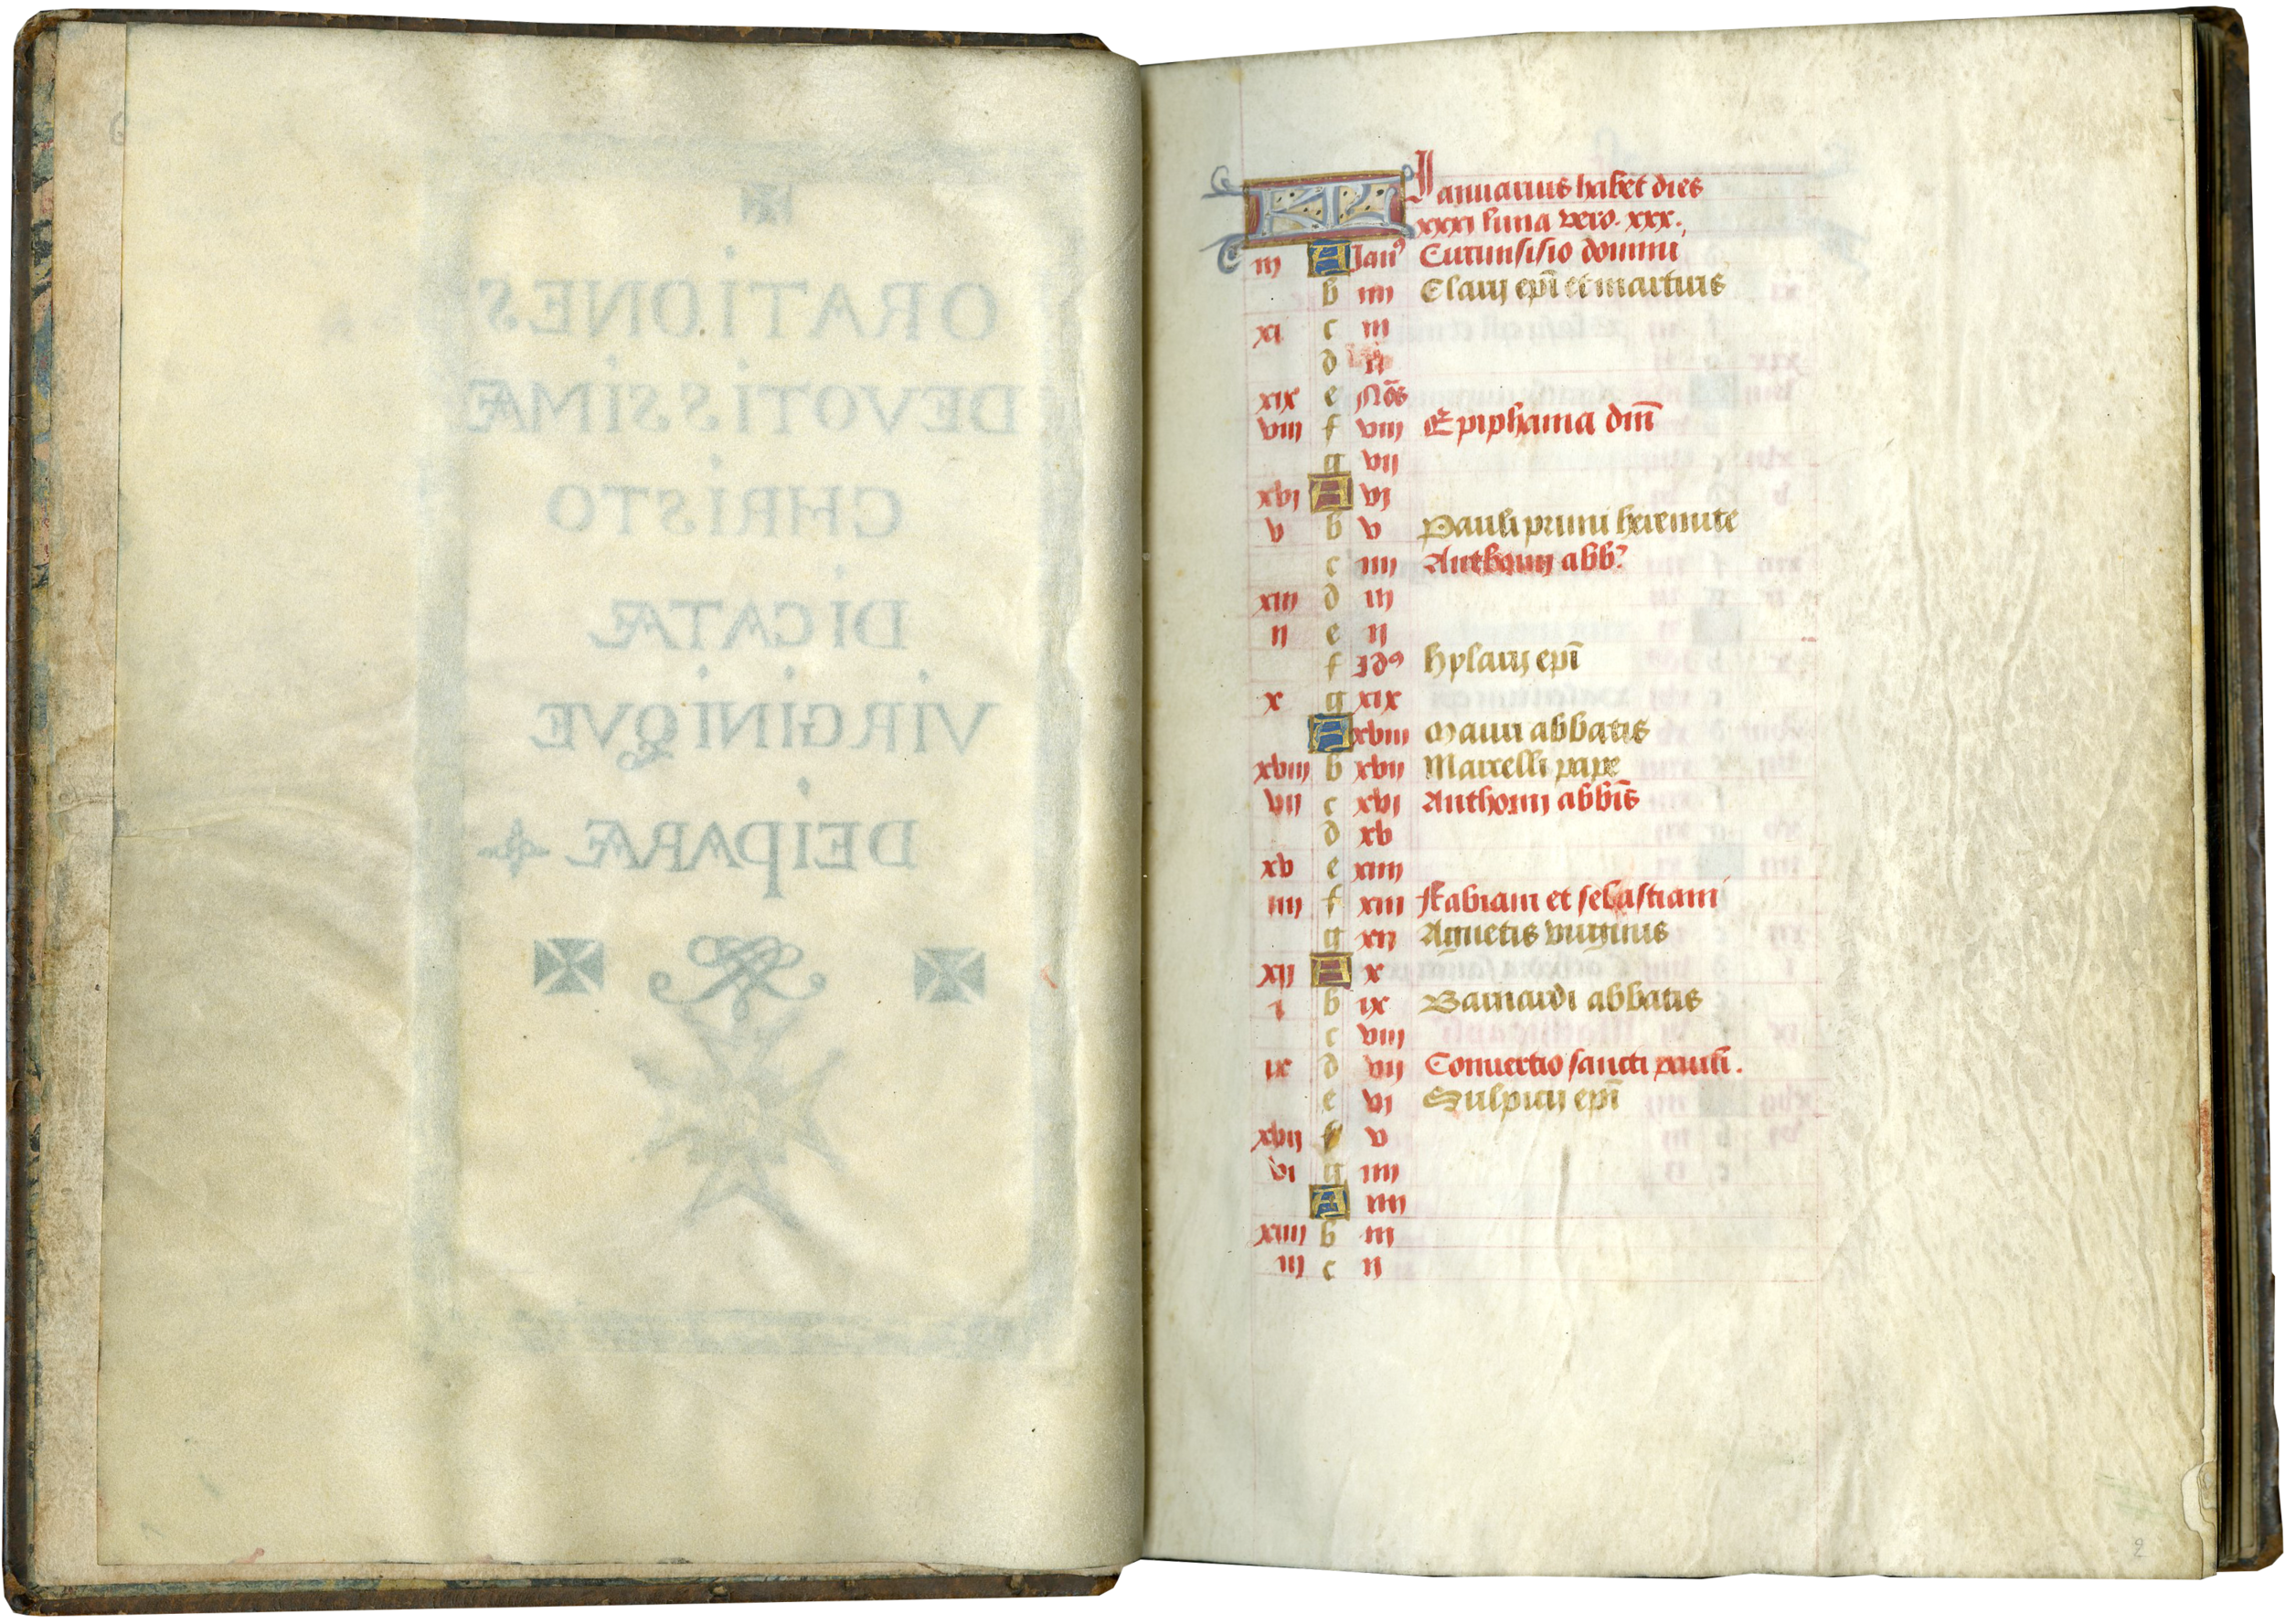 ORATIONES
DEVOTISSIMÆ
CHRISTO
DICATÆ
VIRGINIQVE
DEIPARÆ
KL Januarius habet dies
xxxi luna vero. xxx.
iii A Jan⁹ Circunsisio domini
b iiii Clarij ep̄i et martiris
xi c iii
d ii
xix e Nōs
viii f viii Epiphania dn̄i
g vii
xvi A vi
v b v Pauli primi heremite
c iiii Anthonij abb.
xiii d iii
ii e ii
f Id⁹ hylarij ep̄i
x g xix
A xviii Mauri abbatis
xviii b xvii Marcelli pape
vii c xvi Anthonij abbīs
d xv
xv e xiiii
iiii f xiii Fabiani et sebastiani
g xii Agnetis virginis
xii A x
i b ix Barnardi abbatis
c viii
ix d vii Conuertio sancti pauli.
e vi Sulpicij ep̄i
xvii f v
vi g iiii
A iiii
xiiii b iii
iii c ii
2